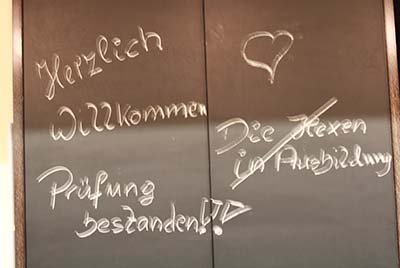 Herzlich
Willkommen
Prüfung
bestanden!!!
Die Hexen
in Ausbildung